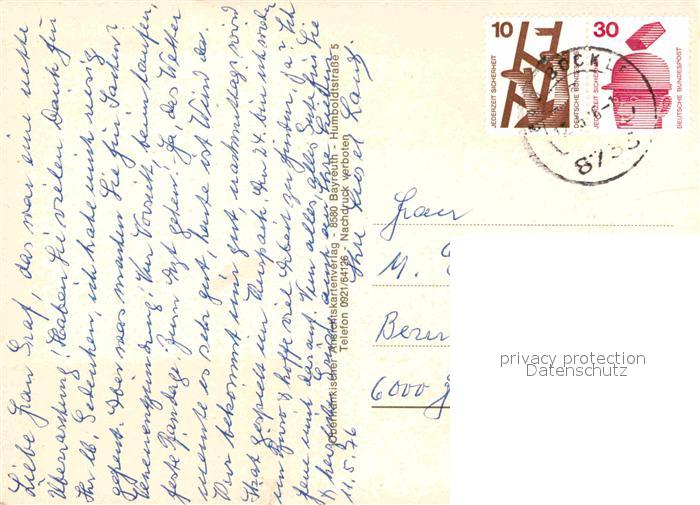 Liebe Frau Graf, das war eine nette
Überraschung! Haben Sie vielen Dank für
Ihr lb. Gedenken, ich habe mich riesig
gefreut. Aber was machen Sie für Sachen?
Venenentzündung! Ihr Vorsicht beim laufen,
feste Bandage. Zum Arzt gehen! Ja, das Wetter
meinte es sehr gut, heute ist Wind da.
Kur bekommt mir gut, nachmittags wird
Skat gespielt im Kurpark. Am 24. bin ich wieder
im Büro & hoffe viel Arbeit zu finden, ja? Ich
freue mich darauf. Nun alles, alles Gute für Sie
& herzliche Grüße auch an Ihre
Ihre Liesel Lang.
11.5.76
Oberfränkischer Ansichtskartenverlag - 8580 Bayreuth - Humboldtstraße 5
Telefon 0921/64126 - Nachdruck verboten
10
JEDERZEIT SICHERHEIT
DEUTSCHE BUNDESPOST
30
JEDERZEIT SICHERHEIT
DEUTSCHE BUNDESPOST
BOCKL
8733
Frau
M.
6000
privacy protection
Datenschutz